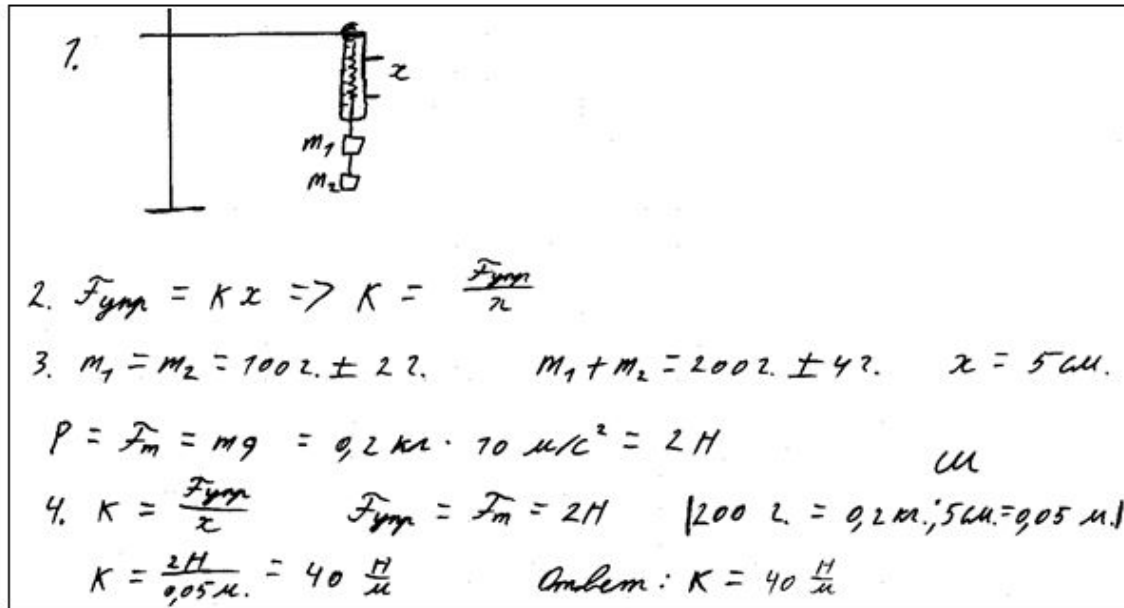 1.
x
m₁
m₂
2. Fупр = Kx => K = Fупр/x
3. m₁ = m₂ = 100г. ± 2г. m₁ + m₂ = 200г. ± 4г. x = 5см.
P = Fт = mg = 0,2 кг · 10 м/с² = 2Н
4. K = Fупр/x Fупр = Fт = 2Н |200 г. = 0,2кг.; 5см. = 0,05 м.|
K = 2Н/0,05м. = 40 Н/м Ответ: K = 40 Н/м